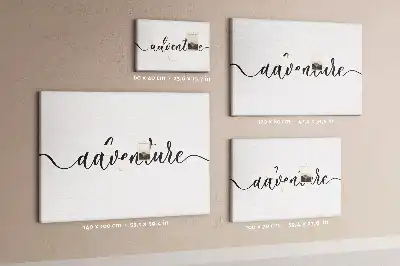 adventure
60 x 40 cm • 23,6 x 15,7 in
adventure
120 x 80 cm • 47,2 x 31,5 in
adventure
140 x 100 cm • 55,1 x 39,4 in
adventure
100 x 70 cm • 39,4 x 27,6 in